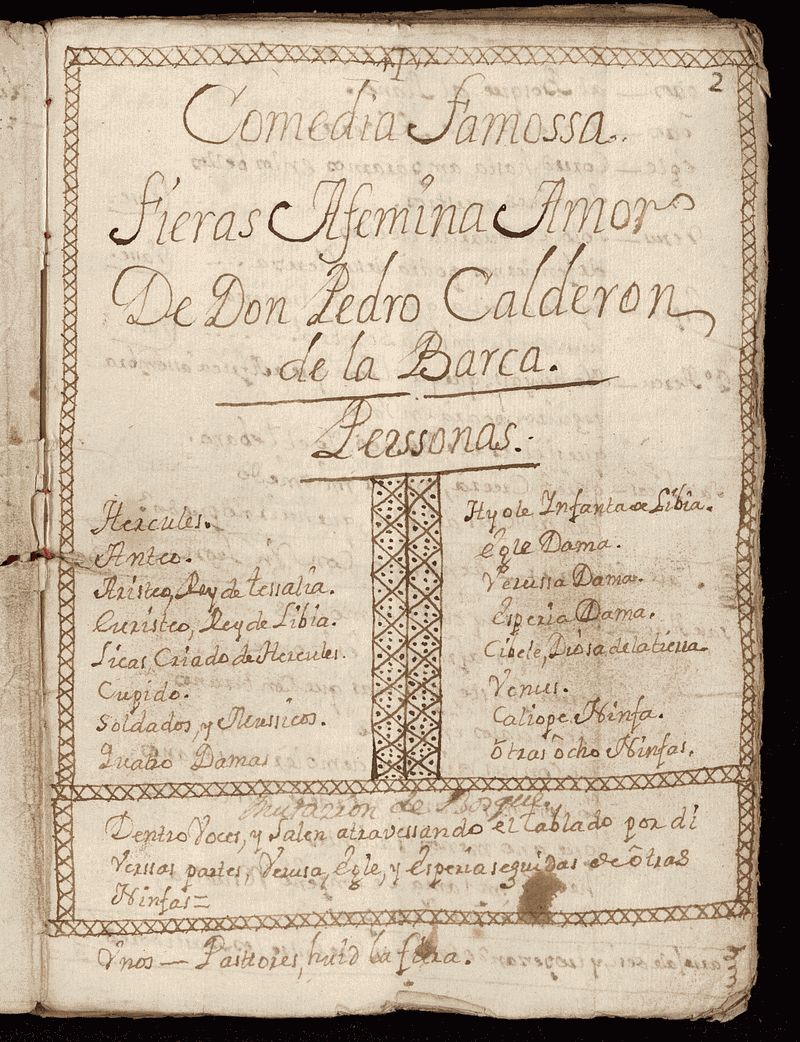 2
Comedia Famossa.
fieras Afemina Amor
De Don Pedro Calderon
de la Barca.
Perssonas.
Hercules.
Anteo.
Aristeo, Rey de tessalia.
Euristeo, Rey de Libia.
Licas, Criado de Hercules.
Cupido.
Soldados, y Mussicos.
Quatro Damas
Hyole Infanta de Libia.
Egle Dama.
Verussa Dama.
Esperia Dama.
Cibele, Diosa de la tierra.
Venus.
Caliope Ninfa.
ôtras ôcho Ninfas.
Mutazion de Bosque.
Dentro Voces, y salen atravessando el tablado por di
verssas partes, Verusa, Egle, y Esperia seguidas de ôtras
Ninfas=
Vnos — Pasttores, huid la fiera.